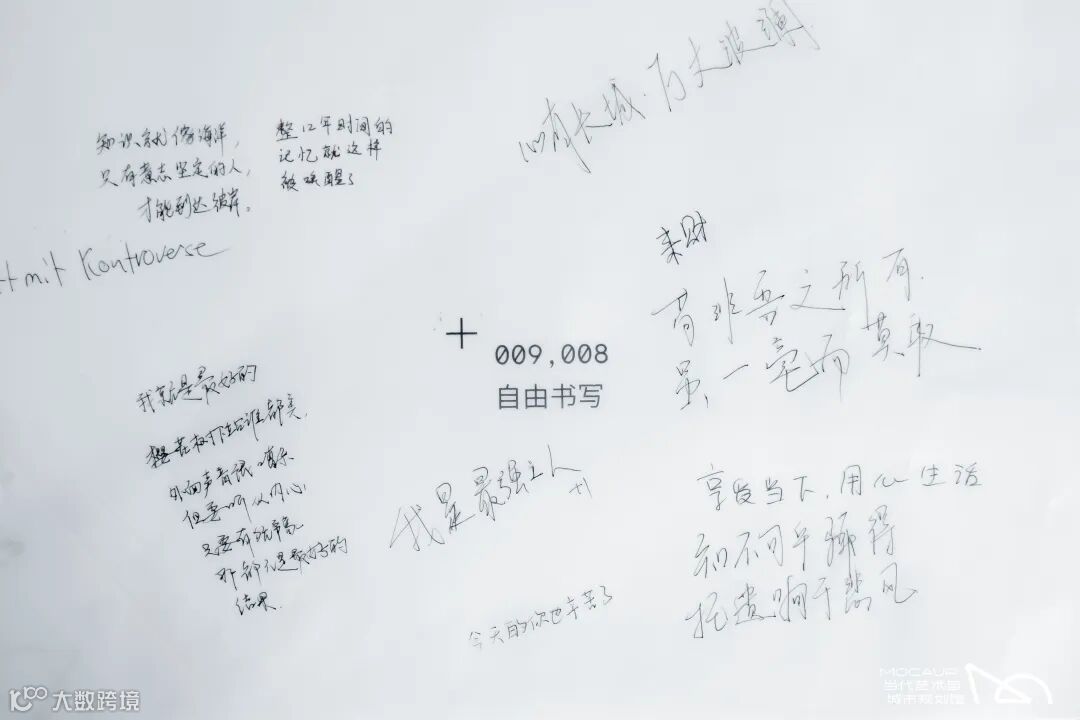 知识就像海洋,
只有意志坚定的人,
才能到达彼岸。
整12年时间的
记忆就这样
被唤醒了
长城·
mit Kontroverse
来财
苟非吾之所有
虽一毫而莫取
+
009,008
自由书写
我就是最好的
樱花树下站谁都美,
外面声音很嘈杂
但要听从内心
只要有
都是最好的
结果.
我是最强主人
+1
今天的你也辛苦了
享受当下,用心生活
知不可乎骤得
托遗响于悲风
大数跨境
MOCAUP
当代艺术与
城市规划馆